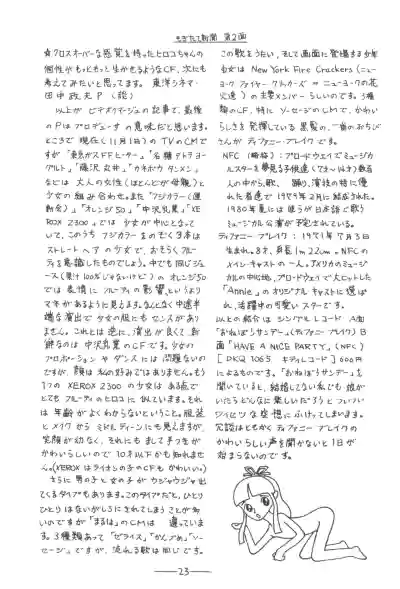 もぎたて新聞 第2面
☆クロスオーバーな感覚を持ったヒロコちゃんの
個性がもっともっと生かせるようなCF、次にも
考えてみたいと思ってます。 東洋シネマ・
田中政夫P (談)
以上が ビデオコマージュの記事で、最後
のPはプロデューサの意味だと思います。
ところで現在(11月1日)のTVのCMで
すが「東京ガスFFヒーター」、「名糖テトラヨー
グルト」、「藤沢丸井」、「カネボウ タンメン」
などは大人の女性(ほとんどが母親)と
少女の組み合わせ。また「フジカラー(運
動会)」、「オレンジ50」、「中沢乳業」、「XE
ROX 2300」では少女が中心となって
いて、このうちフジカラーをのぞく3本は
ストレートヘアの少女で、おそらくフルー
ティを意識したものでしょう。中でも同じジュ
ース(果汁100%じゃないけど)のオレンジ50
では表情にフルーティの影響というより
マネがあるように見えます。なんとなく中途半
端な演出で少女の服にもセンスがあり
ません。これとは逆に、演出が良くて新
鮮なのは中沢乳業のCFです。少女の
プロポーションやダンスには問題ないの
ですが、顔は私の好みではありません。もう
1つの XEROX 2300の少女はある点で
とてもフルーティのヒロコに似ています。それ
は年齢がよくわからないということ。服装
とメイクからミドルティーンにも見えますが、
笑顔が幼なく、それにもまして手つきが
かわいらしいので10才以下かも知れませ
ん。(XEROXはライオンの子のCFもかわいい。)
さらに男の子と女の子がウジャウジャ出
てくるタイプもあります。このタイプだと、ひとり
ひとりはないがしろにされてしまうことが多
いのですが「まるは」のCMは違っていま
す。3種類あって「ゼライス」「かんづめ」「ソー
セージ」ですが、流れる歌は同じです。
この歌をうたい、そして画面に登場する少年
少女は New York Fire Crackers (ニュー
ヨーク ファイヤー クラッカーズ = ニューヨークの花
火達)の主要メンバーらしいのです。3種
類のCF、特にソーセージのCMで、かわい
らしさを発揮している黒髪の、一番のおちび
さんがティファニー・ブレイクです。
NFC(略称):ブロードウェイでミュージカ
ルスターを夢見る子供達(7才〜14才)数百
人の中から、歌、踊り、演技の特に優
れた者達で1979年2月に結成された。
1980年夏には ほうが日本語で歌う
ミュージカル公演が予定されている。
ティファニー・ブレイク:1971年7月3日
生まれ。8才、身長1m22cm。NFCの
メインキャストの一人。アメリカのミュージ
カルの中心地、ブロードウェイで大ヒットした
「Annie」のオリジナル キャストに選ば
れ、活躍中の可愛いスターです。
以上の紹介はシングルレコード A面
「おねぼうサンデー」(ティファニーブレイク) B
面「HAVE A NICE PARTY」(NFC)
[DKQ 1065 キティレコード] 600円
によるものです。「おねぼうサンデー」を
聞いていると、結婚してない私でも 娘が
いたらどんなに楽しいだろうと
ワイセツな空想にふけってしまいます。
冗談はともかくティファニーブレイクの
かわいらしい声を聞かないと1日が
始まらないのです。
23